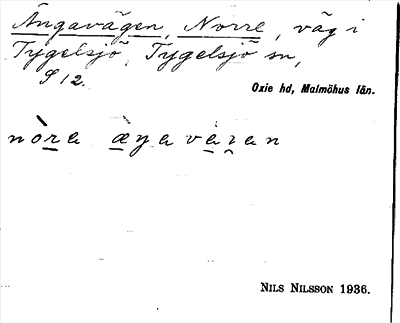 Ängavägen, Norre, väg i
Tygelsjö, Tygelsjö sn,
S 12.
Oxie hd, Malmöhus län.
nòra æ̀ŋavàɜan
NILS NILSSON 1936.